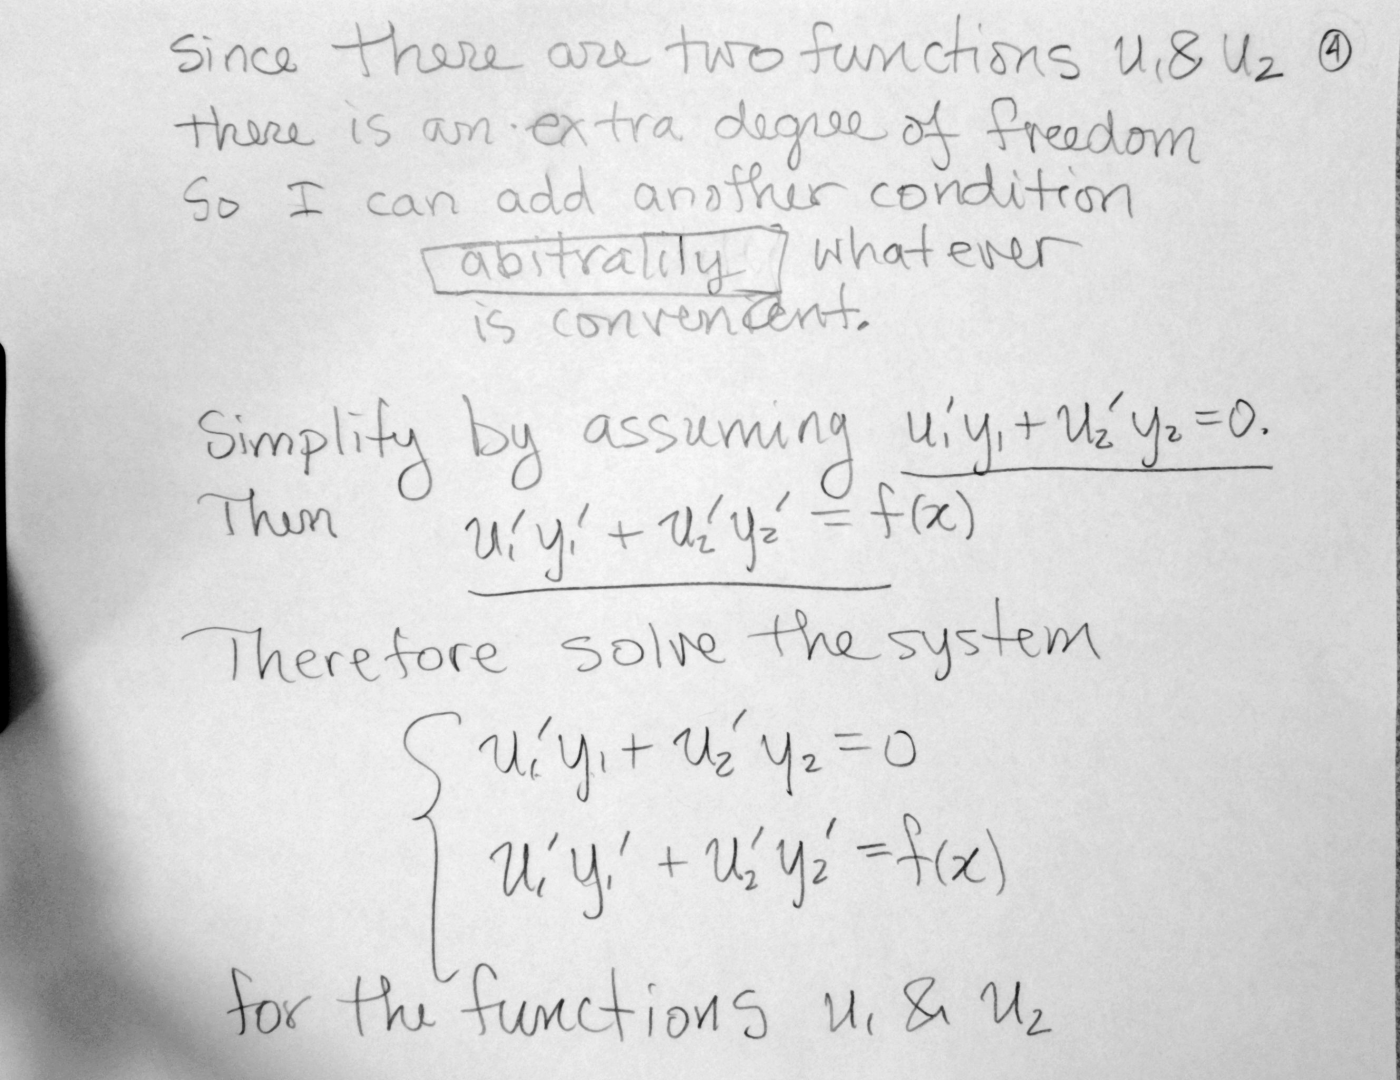 Since there are two functions u₁ & u₂ ④
there is an extra degree of freedom
So I can add another condition
abitralily whatever
is convenient.
Simplify by assuming u₁'y₁ + u₂'y₂ = 0.
Then u₁'y₁' + u₂'y₂' = f(x)
Therefore solve the system
u₁'y₁ + u₂'y₂ = 0
u₁'y₁' + u₂'y₂' = f(x)
for the functions u₁ & u₂